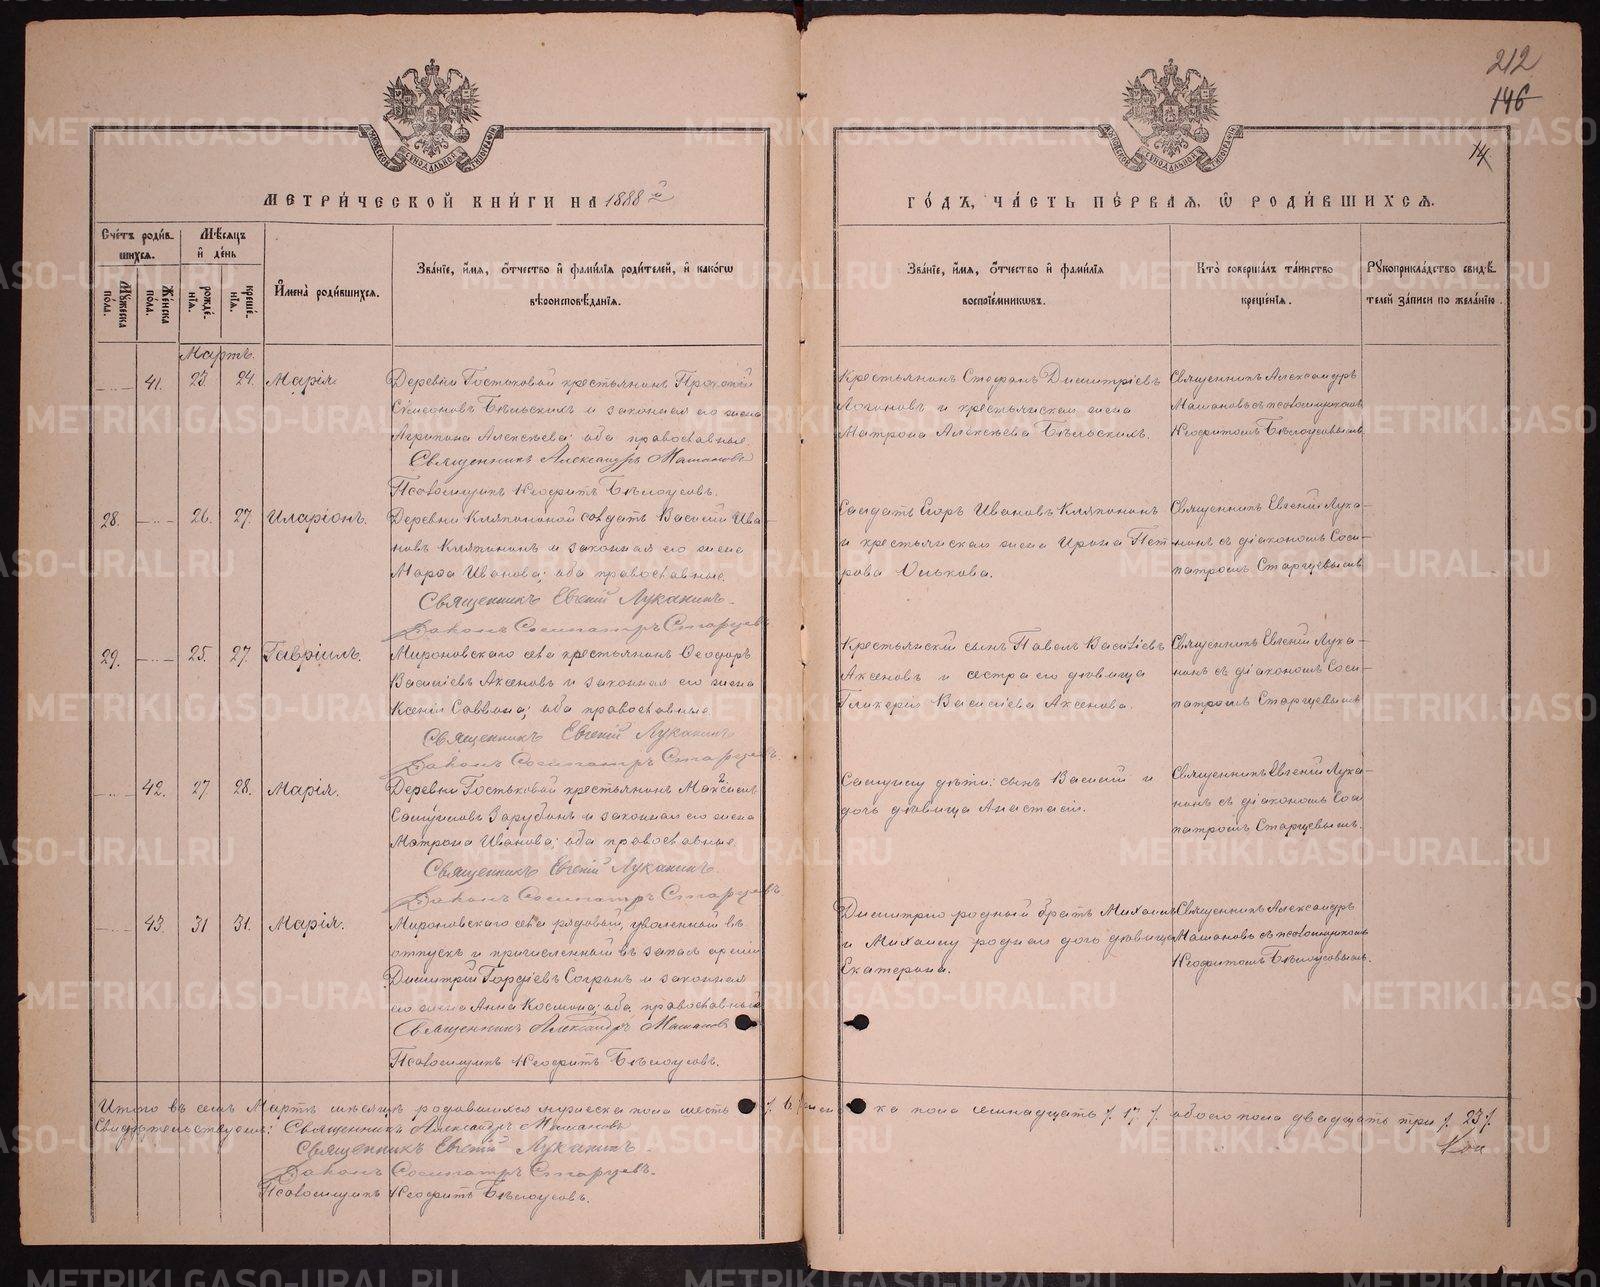 212
146
14
МЕТРИ́ЧЕСКОЙ КНИ́ГИ НА 1888й
ГО́ДЪ, ЧА́СТЬ ПЕ́РВАЯ, Ѿ РОДИ́ВШИХСЯ.
Сче́тъ роди́в-
шихся.
Мѣ́сяцъ
и҆ де́нь
Мꙋ́жеска по́ла.
Же́нска по́ла.
рожде́-
нїѧ.
креще́-
нїѧ.
И҆мена̀ роди́вшихся.
Зва́нїе, и҆́мѧ, ѻ҆́тчество и҆ фами́лїѧ роди́телей, и҆ како́гѡ
вѣроисповѣ́данїѧ.
Зва́нїе, и҆́мѧ, ѻ҆́тчество и҆ фами́лїѧ
воспрїе́мникѡвъ.
Кто̀ соверша́лъ та́инство
креще́нїѧ.
Рꙋкоприкла́дство свидѣ́-
телей за́писи по жела́нїю.
Мартъ.
41. 23. 24. Марія.
Деревни Гостьковой крестьянинъ Прокопій
Симеоновъ Бѣльскихъ и законная его жена
Агрипина Алексѣева; оба православные.
Священникъ Александръ Машановъ
Псаломщикъ Неофитъ Бѣлоусовъ.
Крестьянинъ Стефанъ Димитріевъ
Логиновъ и крестьянская жена
Матрона Алексѣева Бѣльскихъ.
Священникъ Александръ
Машановъ съ псаломщикомъ
Неофитомъ Бѣлоусовымъ.
28. 26. 27. Иларіонъ.
Деревни Кляпининой солдатъ Василій Ива-
новъ Кляпининъ и законная его жена
Марѳа Иванова; оба православные.
Священникъ Евгеній Луканинъ.
Діаконъ Сосипатръ Старцевъ
Солдатъ Егоръ Ивановъ Кляпининъ
и крестьянская жена Ирина Пет
рова Оськова.
Священникъ Евгеній Лука-
нинъ съ діакономъ Соси-
патромъ Старцевымъ
29. 25. 27. Гавріилъ.
Мироновскаго села крестьянинъ Ѳеодоръ
Василіевъ Аксеновъ и законная его жена
Ксенія Саввина; оба православные.
Священникъ Евгеній Луканинъ
Діаконъ Сосипатръ Старцевъ.
Крестьянскій сынъ Павелъ Василіевъ
Аксеновъ и сестра его дѣвица
Гликерія Василіева Аксенова.
Священникъ Евгеній Лука-
нинъ съ діакономъ Соси-
патромъ Старцевымъ
42. 27 28. Марія.
Деревни Гостьковой крестьянинъ Максимъ
Самуиловъ Зарубинъ и законная его жена
Матрона Иванова; оба православные.
Священникъ Евгеній Луканинъ.
Діаконъ Сосипатръ Старцевъ
Самуилу дѣти: сынъ Василій и
дочь дѣвица Анастасія.
Священникъ Евгеній Лука-
нинъ съ діакономъ Соси
патромъ Старцевымъ.
43. 31 31. Марія.
Мироновскаго села рядовой, уволенный въ
отпускъ и причисленный въ запасъ арміи
Димитрій Гордіевъ Согринъ и законная
его жена Анна Космина; оба православные
Священникъ Александръ Машановъ
Псаломщикъ Неофитъ Бѣлоусовъ.
Димитрію родный братъ Михаилъ
и Михаилу родная дочь дѣвица
Екатерина.
Священникъ Александръ
Машановъ съ псаломщикомъ
Неофитомъ Бѣлоусовымъ.
Итого въ семъ Мартѣ мѣсяцѣ родившихся мужеска пола шесть /. 6 /. женска пола семнадцать /. 17 /. обоего пола двадцать три /. 23 /.
Свидѣтельствуемъ: Священникъ Александръ Машановъ
Священникъ Евгеній Луканинъ.
Діаконъ Сосипатръ Старцевъ.
Псаломщикъ Неофитъ Бѣлоусовъ.